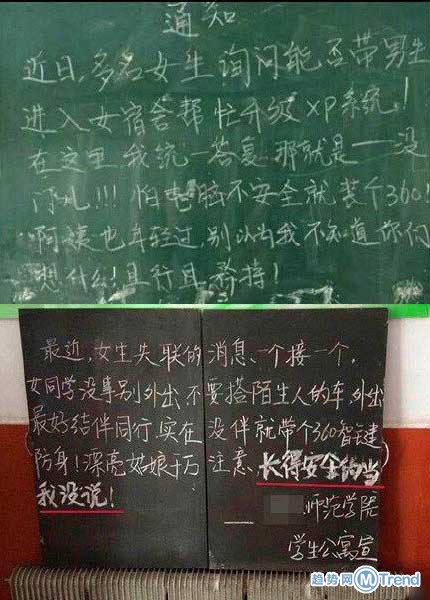 通知
近日,多名女生询问能否带男生
进入女宿舍帮忙升级XP系统!
在这里我统一答复那就是——没
门儿!!!怕电脑不安全就装个360!
阿姨也年轻过,别以为我不知道你们
想什么!且行且矜持!
最近,女生失联的消息一个接一个,
女同学没事别外出,不要搭陌生人的车,外出
最好结伴同行,实在没伴就带个360智键
防身!漂亮姑娘千万注意,长得安全的当
我没说!
师范学院
学生公寓宣
趋势网 M Trend